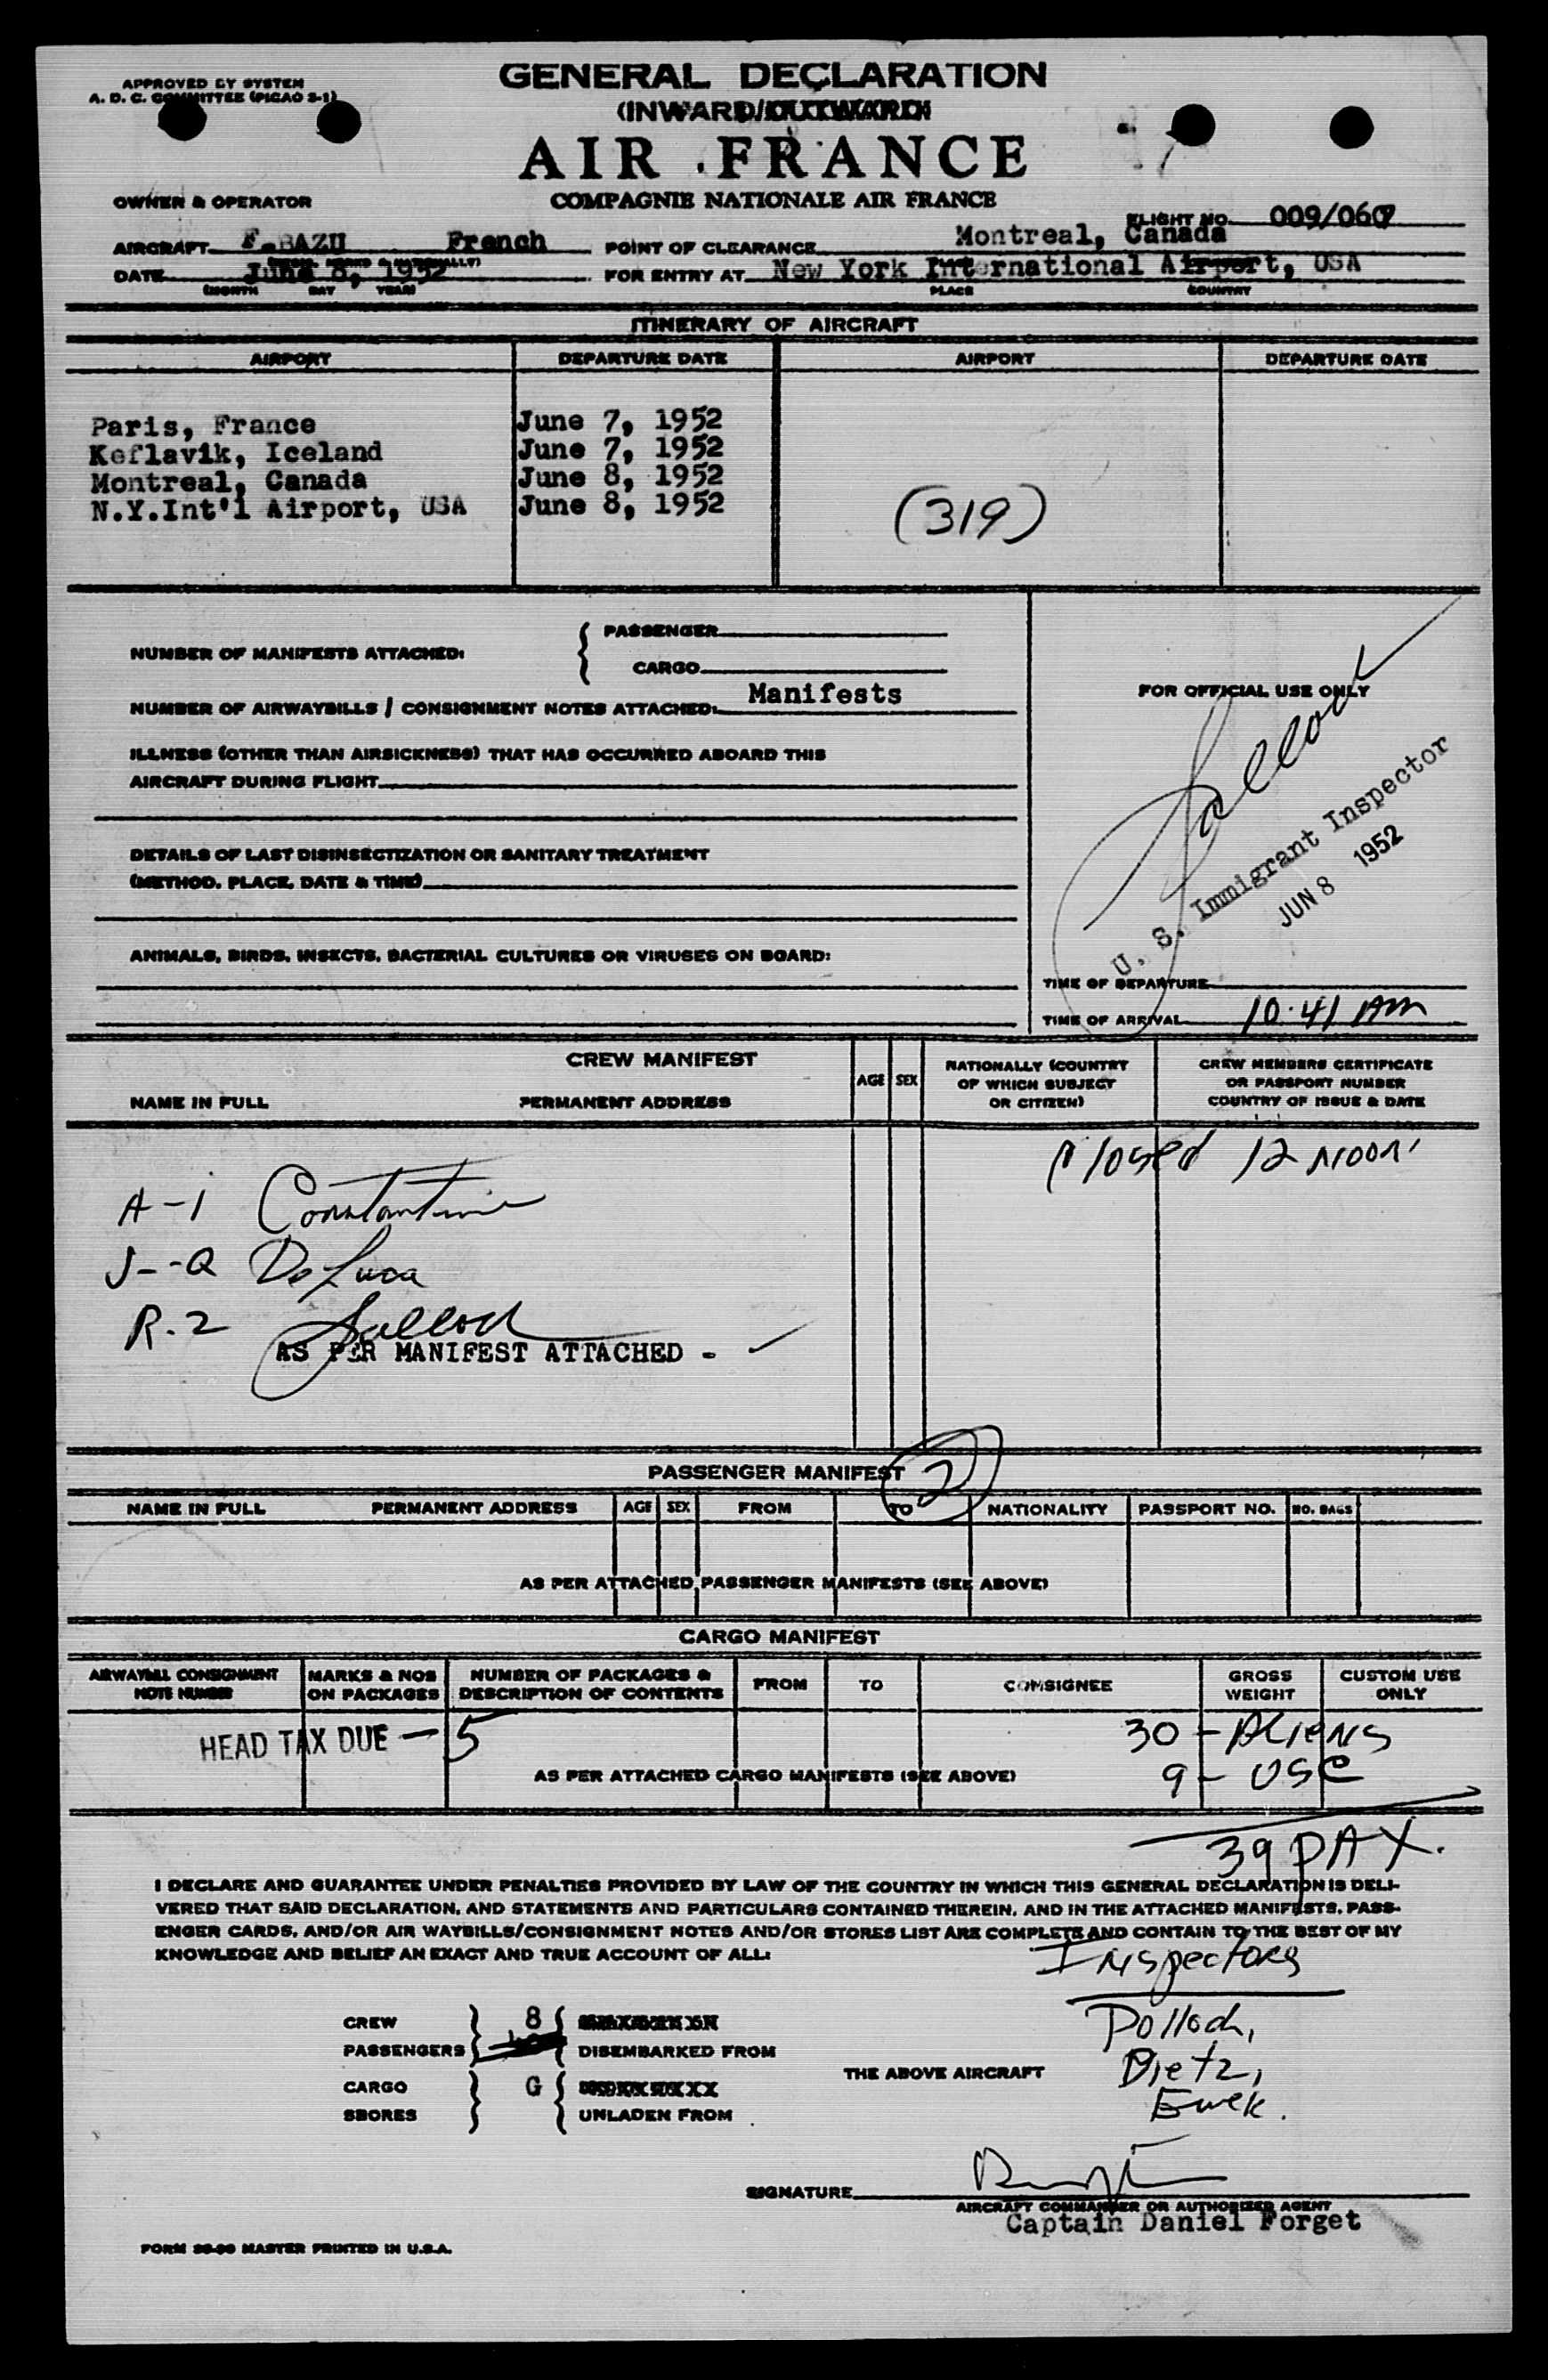 APPROVED BY SYSTEM
A. D. C. COMMITTEE (PICAO 2-1)
GENERAL DECLARATION
(INWARD/OUTWARD)
AIR FRANCE
COMPAGNIE NATIONALE AIR FRANCE
OWNER & OPERATOR
FLIGHT NO. 009/060
AIRCRAFT F.BAZU French
(REGIS. MARKS & NATIONALLY)
POINT OF CLEARANCE Montreal, Canada
DATE June 8, 1952
(MONTH DAY YEAR)
FOR ENTRY AT New York International Airport, USA
PLACE COUNTRY
ITINERARY OF AIRCRAFT
AIRPORT DEPARTURE DATE AIRPORT DEPARTURE DATE
Paris, France June 7, 1952
Keflavik, Iceland June 7, 1952
Montreal, Canada June 8, 1952
N.Y.Int'l Airport, USA June 8, 1952
(319)
NUMBER OF MANIFESTS ATTACHED: { PASSENGER
CARGO
NUMBER OF AIRWAYBILLS / CONSIGNMENT NOTES ATTACHED: Manifests
ILLNESS (OTHER THAN AIRSICKNESS) THAT HAS OCCURRED ABOARD THIS
AIRCRAFT DURING FLIGHT
DETAILS OF LAST DISINSECTIZATION OR SANITARY TREATMENT
(METHOD, PLACE, DATE & TIME)
ANIMALS, BIRDS, INSECTS, BACTERIAL CULTURES OR VIRUSES ON BOARD:
FOR OFFICIAL USE ONLY
U. S. Immigrant Inspector
JUN 8 1952
TIME OF DEPARTURE
TIME OF ARRIVAL 10:41 AM
CREW MANIFEST
NAME IN FULL PERMANENT ADDRESS
AGE SEX
NATIONALLY (COUNTRY
OF WHICH SUBJECT
OR CITIZEN)
CREW MEMBERS CERTIFICATE
OR PASSPORT NUMBER
COUNTRY OF ISSUE & DATE
Closed 12 Noon
A-i Constantine
J--Q De Luca
R-Z
AS PER MANIFEST ATTACHED -
PASSENGER MANIFEST 2
NAME IN FULL PERMANENT ADDRESS AGE SEX FROM TO NATIONALITY PASSPORT NO. NO. BAGS
AS PER ATTACHED PASSENGER MANIFESTS (SEE ABOVE)
CARGO MANIFEST
AIRWAYBILL CONSIGNMENT
NOTE NUMBER
MARKS & NOS
ON PACKAGES
NUMBER OF PACKAGES &
DESCRIPTION OF CONTENTS
FROM TO CONSIGNEE
GROSS
WEIGHT
CUSTOM USE
ONLY
HEAD TAX DUE — 5
30 - ALIENS
AS PER ATTACHED CARGO MANIFESTS (SEE ABOVE)
9 - USC
39 PAX.
I DECLARE AND GUARANTEE UNDER PENALTIES PROVIDED BY LAW OF THE COUNTRY IN WHICH THIS GENERAL DECLARATION IS DELI-
VERED THAT SAID DECLARATION, AND STATEMENTS AND PARTICULARS CONTAINED THEREIN, AND IN THE ATTACHED MANIFESTS, PASS-
ENGER CARDS, AND/OR AIR WAYBILLS/CONSIGNMENT NOTES AND/OR STORES LIST ARE COMPLETE AND CONTAIN TO THE BEST OF MY
KNOWLEDGE AND BELIEF AN EXACT AND TRUE ACCOUNT OF ALL:
Inspectors
Polloch,
Dietz,
CREW 8
PASSENGERS DISEMBARKED FROM
THE ABOVE AIRCRAFT
CARGO G
SBORES UNLADEN FROM
SIGNATURE
AIRCRAFT COMMANDER OR AUTHORIZED AGENT
Captain Daniel Forget
FORM MASTER PRINTED IN U.S.A.